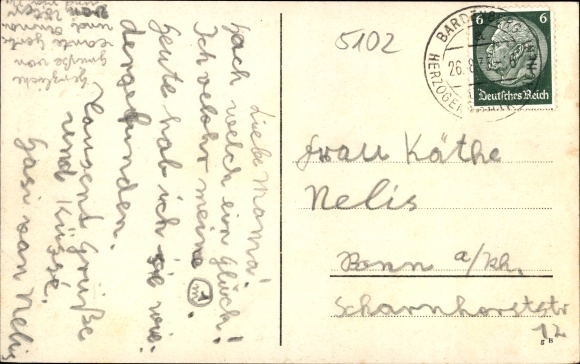 Liebe Mama!
Hach welch ein Glück!
Ich verlohr meine (m)
heute hab ich sie wie-
dergefunden.
Tausend Grüße
und Küsse.
Gasi van Nelis
Herzliche
grüße von
tante
und
von
5102
BARDENBERG
26.8.
HERZOGEN
6 6
Deutsches Reich
Frau Käthe
Nelis
Bonn a/Rh.
Scharnhorststr
12